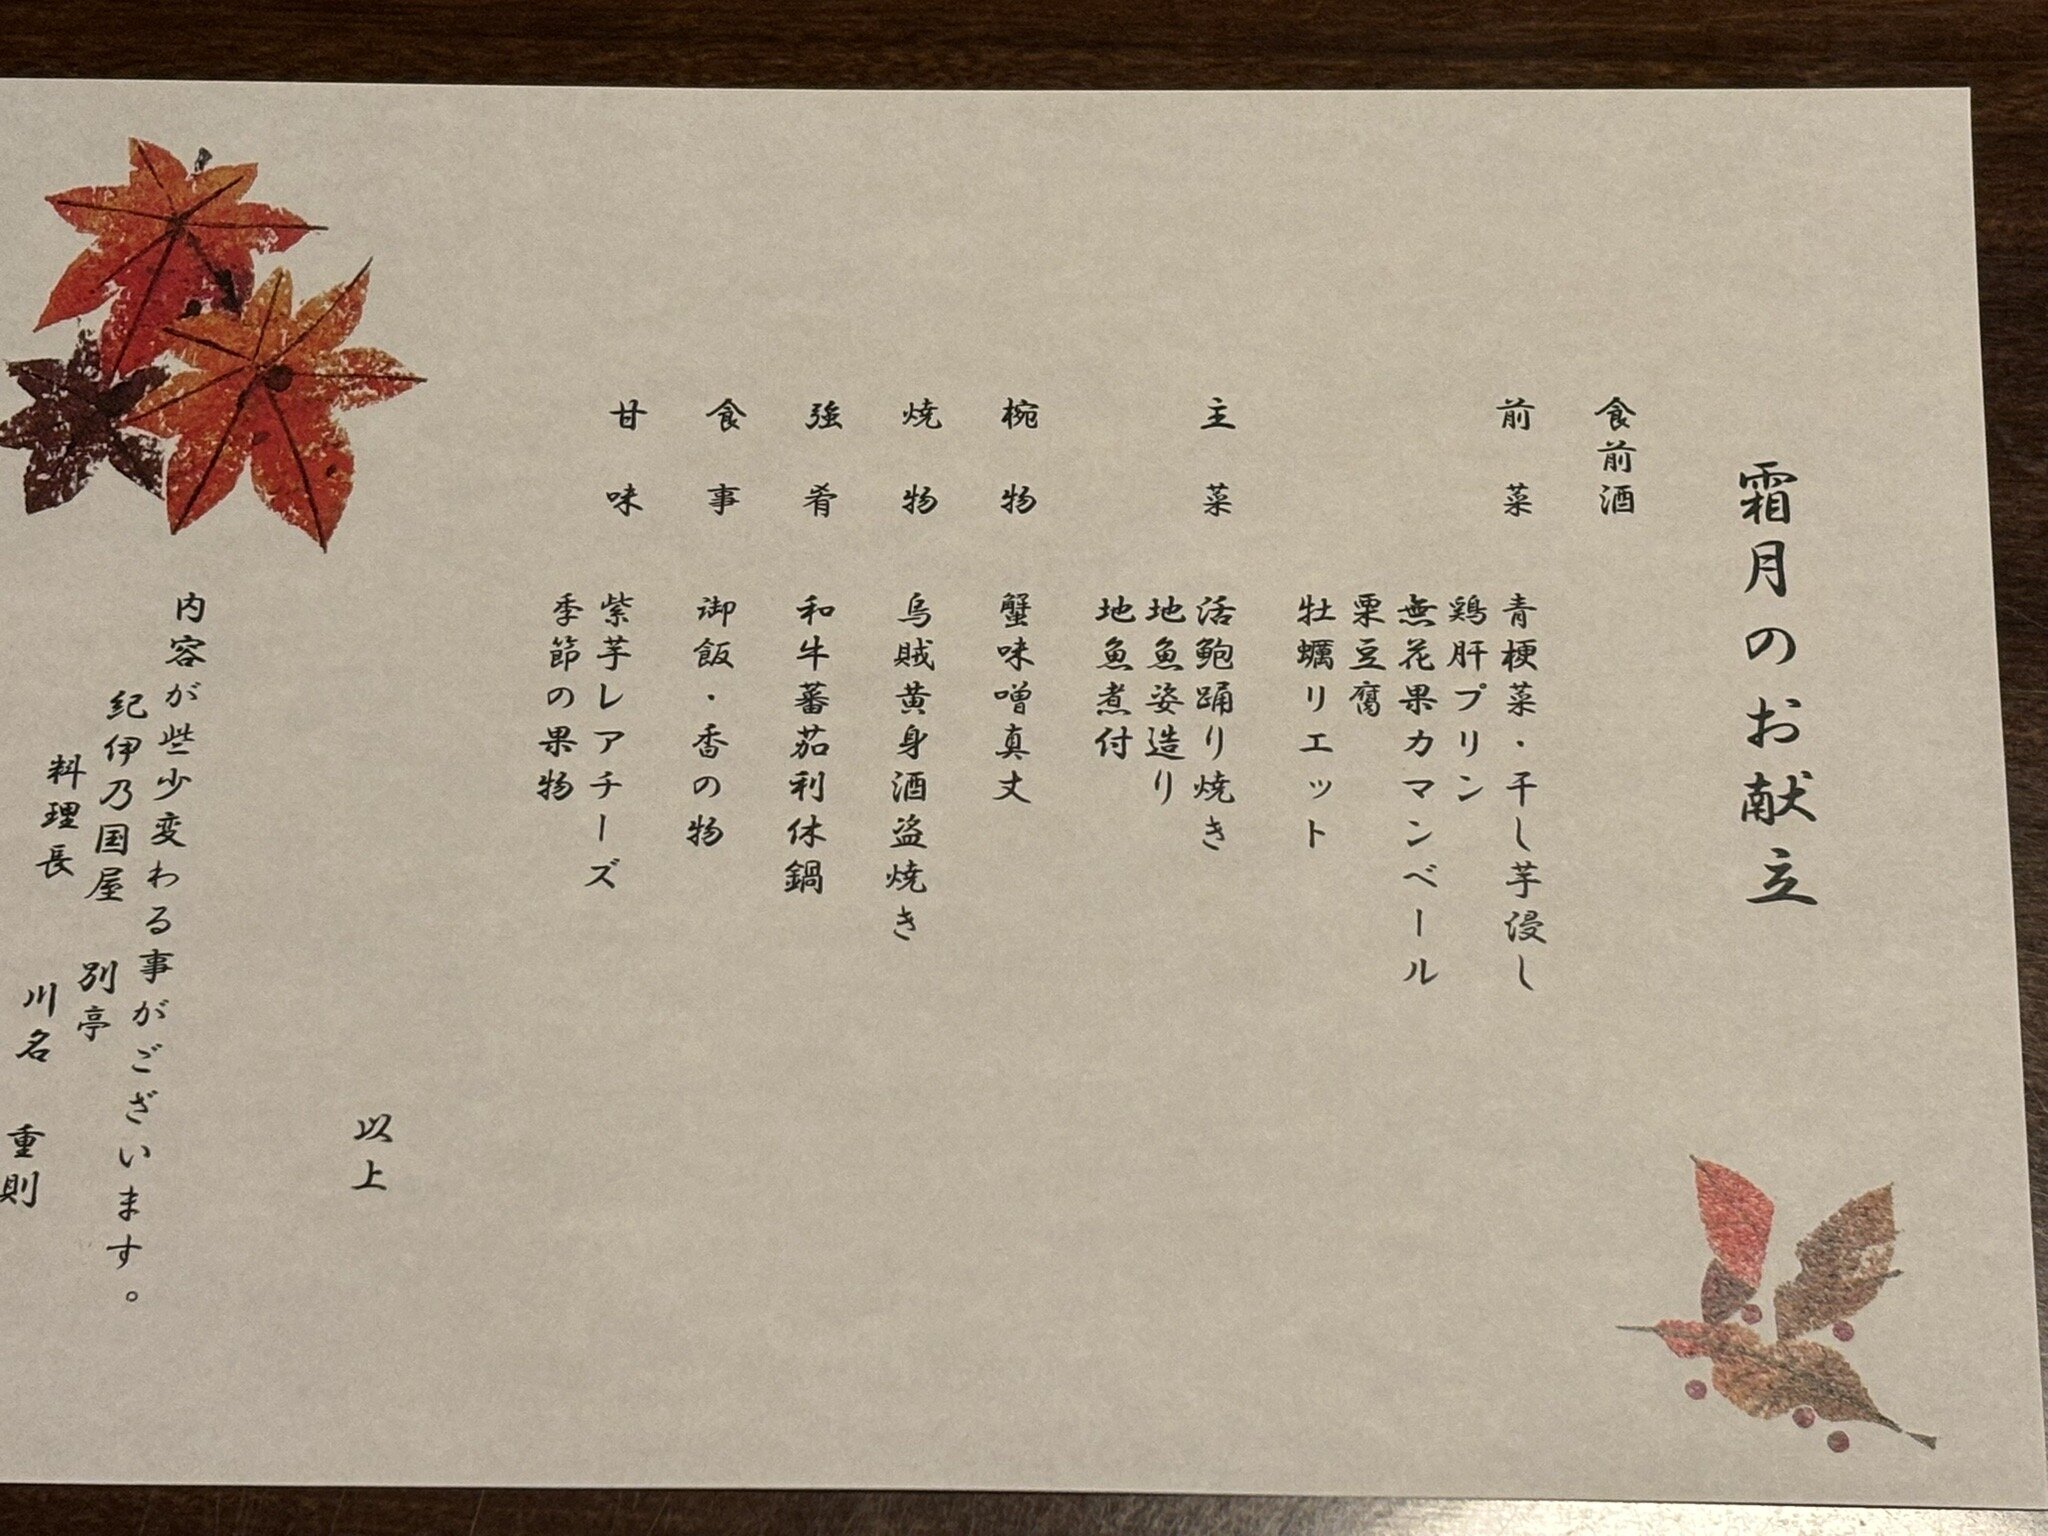 霜月のお献立
食前酒
前菜 青梗菜・干し芋浸し
鶏肝プリン
無花果カマンベール
栗豆腐
牡蠣リエット
主菜 活鮑踊り焼き
地魚姿造り
地魚煮付
椀物 蟹味噌真丈
焼物 烏賊黄身酒盗焼き
強肴 和牛蕃茄利休鍋
食事 御飯・香の物
甘味 紫芋レアチーズ
季節の果物
以上
内容が些少変わる事がございます。
紀伊乃国屋 別亭
料理長 川名 重則